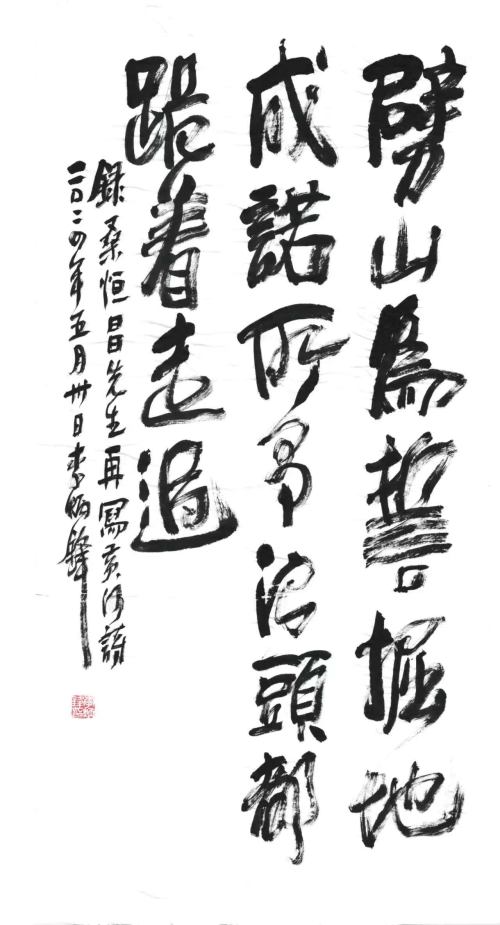 劈山為誓掘地
成諾所有浪頭都
跪着走過
録桑恒昌先生再寫黃河詩
二〇二四年五月卅日李炳鋒